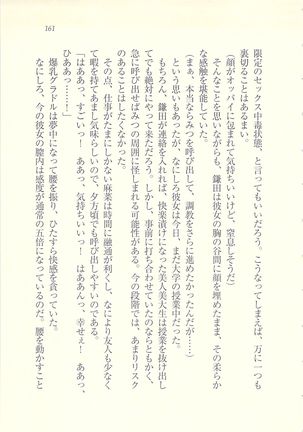 限定のセックス中毒状態、と言ってもいいだろう。こうなってしまえば、万に一つも
裏切ることはあるまい。
(顔がオッパイに包まれて気持ちいいけど、窒息しそうだ)
そんなことを思いながらも、鎌田は彼女の胸の谷間に顔を埋めたまま、その柔らか
な感触を堪能していた。
(まぁ、本当ならみつを呼び出して、調教をさらに進めたかったんだが……)
という思いもあったが、なにしろ彼女は今日、まだ大学の授業中だった。
もちろん、鎌田が連絡を入れれば、快楽漬けになった美人美大生は授業を抜け出し
てでも絶対にやって来ただろう。しかし、事前に打ち合わせていたのならともかく、
急に呼び出せばみつの周囲に怪しまれる可能性がある。今の段階では、あまりリスク
のあることはしたくなかった。
その点、仕事がたまにしかない麻菜は時間に融通が利くし、なにより友人も少なく
て暇を持てあまし気味らしいので、夕方頃でも呼び出しやすいのである。
「はああっ、すごいっ！　あああっ、気持ちいいっ！　はああんっ、幸せぇ！　ああっ、
ひああっ……！」
爆乳グラドルは夢中になって腰を振り、ひたすら快感を貪っていた。
なにしろ、今の彼女の膣内は感度が通常の五倍になっているのだ。腰を動かすこと
161